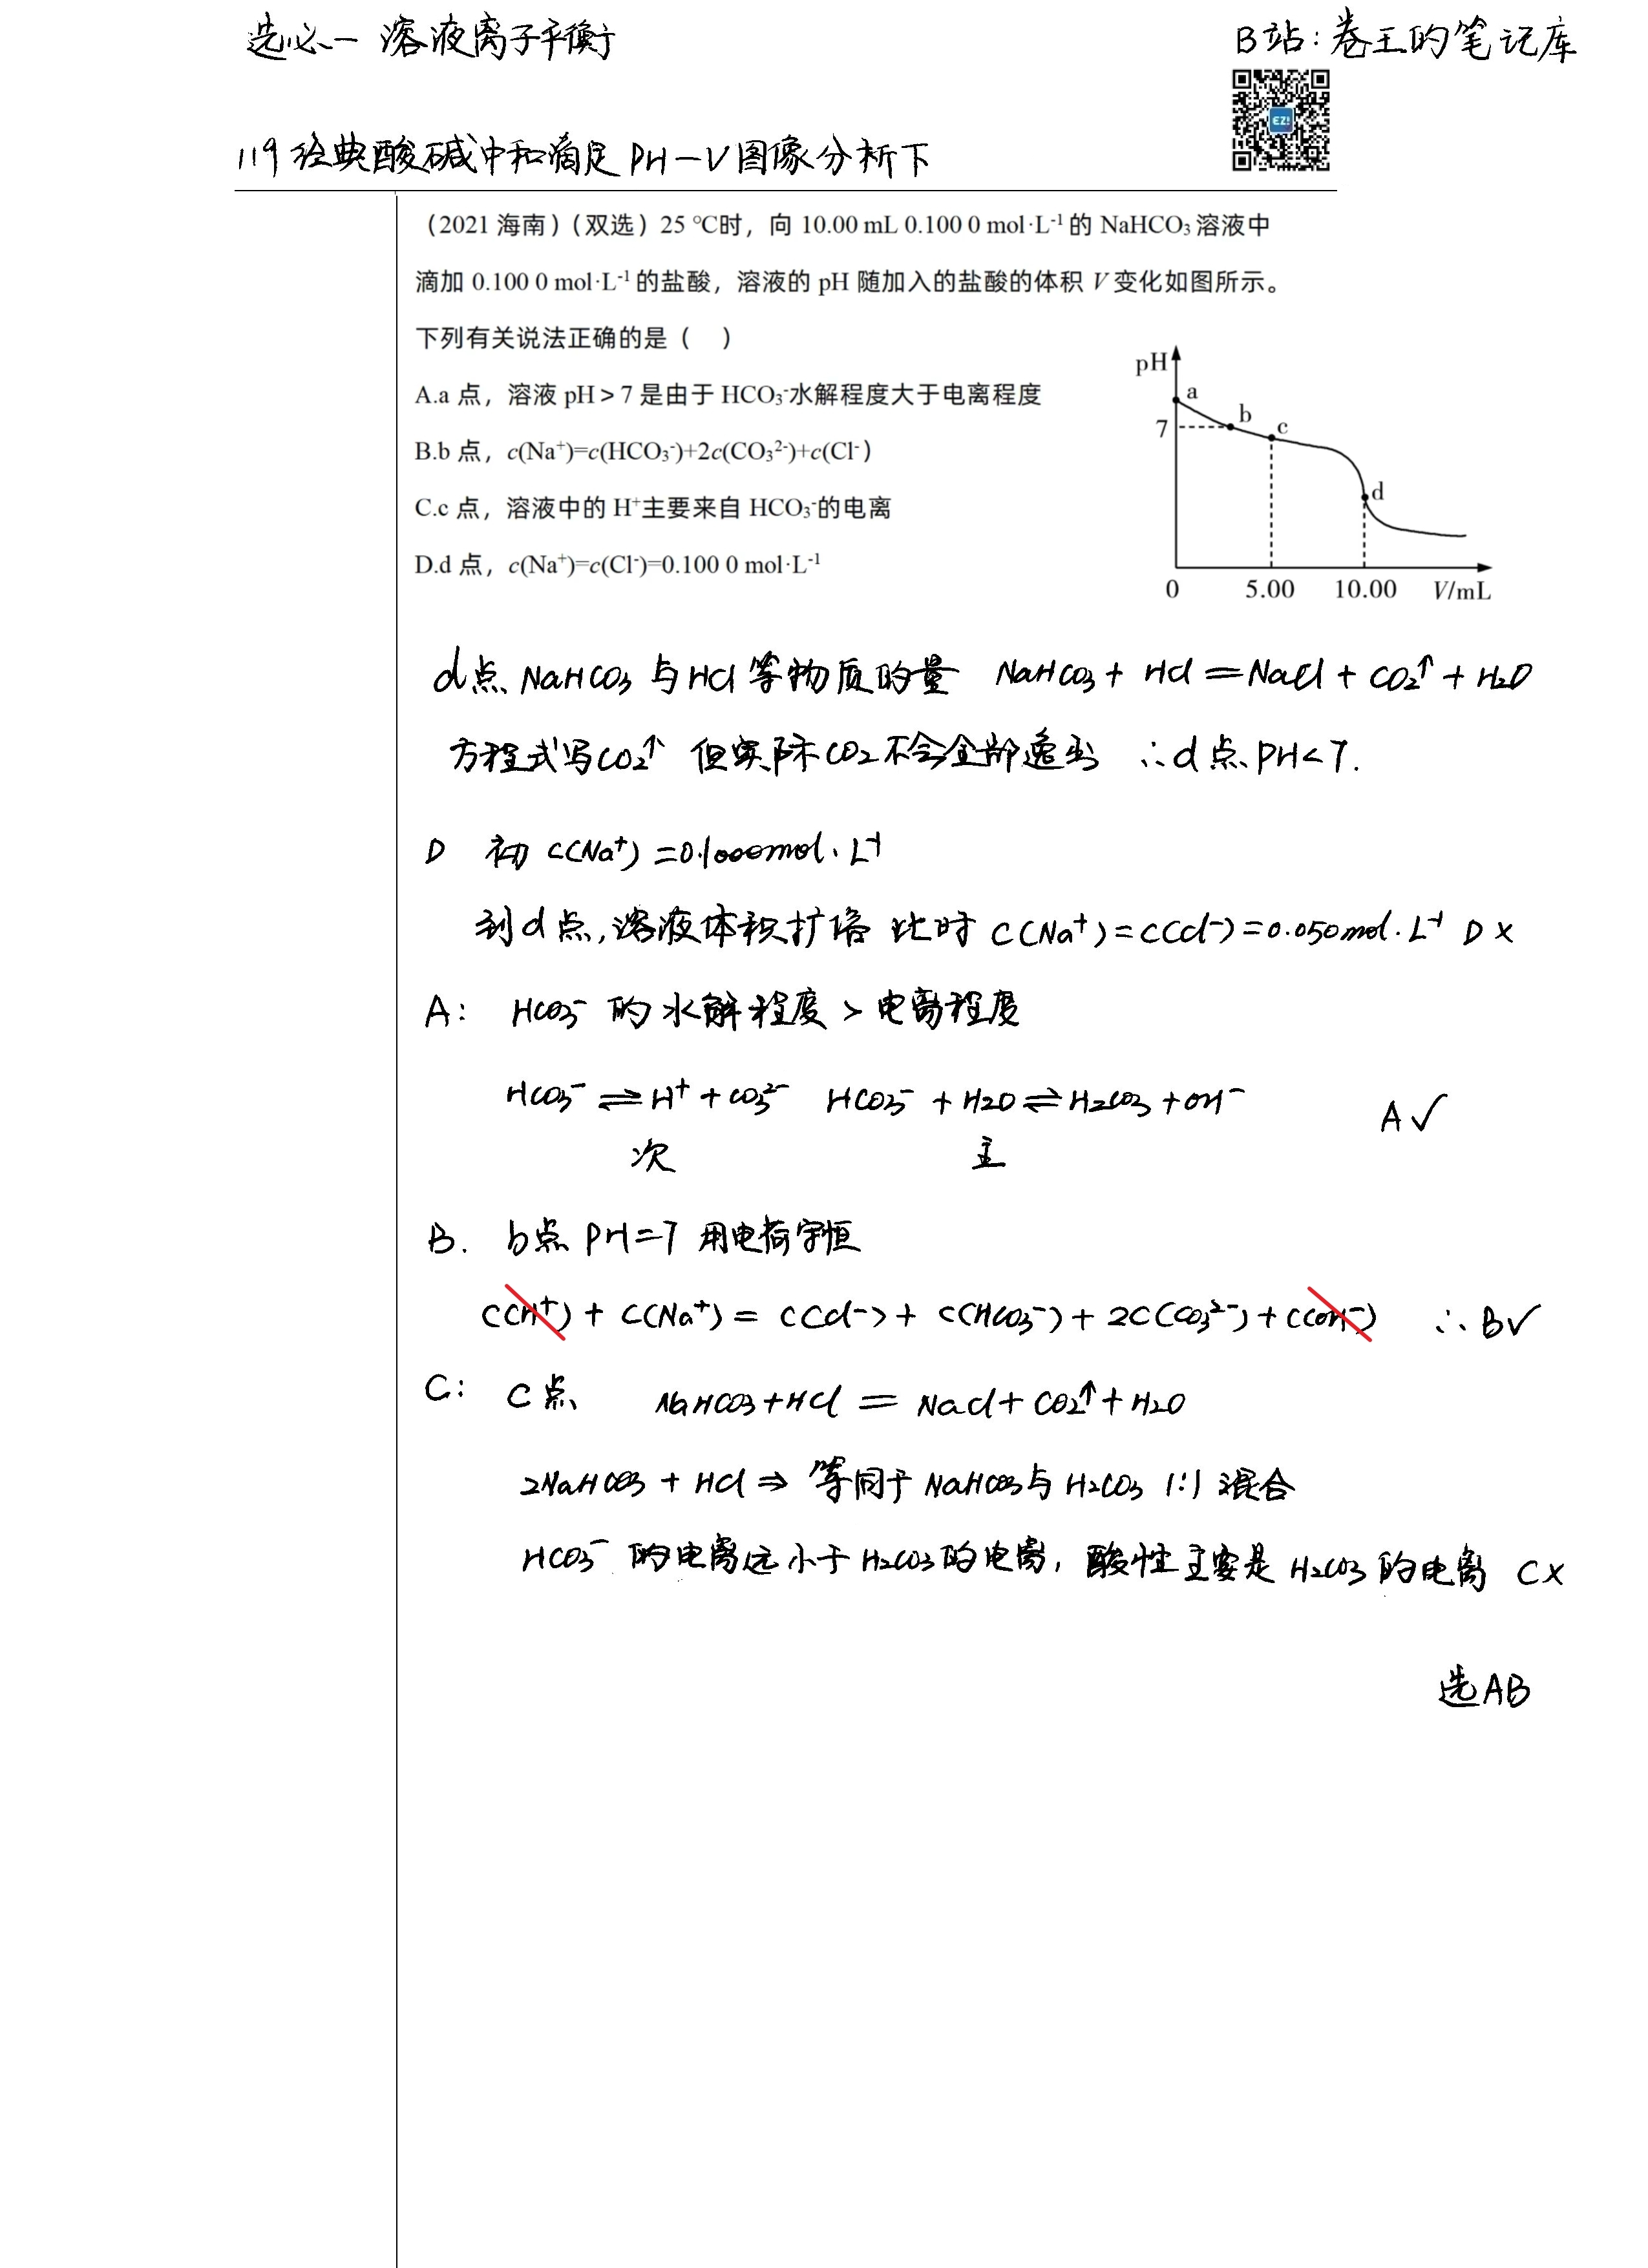 选必一 溶液离子平衡
B站:卷王的笔记库
EZ!
119 经典酸碱中和滴定PH-V图像分析下
（2021 海南）（双选）25 ℃时，向 10.00 mL 0.100 0 mol·L⁻¹ 的 NaHCO₃ 溶液中
滴加 0.100 0 mol·L⁻¹ 的盐酸，溶液的 pH 随加入的盐酸的体积 V 变化如图所示。
下列有关说法正确的是（ ）
A.a 点，溶液 pH＞7 是由于 HCO₃⁻水解程度大于电离程度
B.b 点，c(Na⁺)=c(HCO₃⁻)+2c(CO₃²⁻)+c(Cl⁻)
C.c 点，溶液中的 H⁺主要来自 HCO₃⁻的电离
D.d 点，c(Na⁺)=c(Cl⁻)=0.100 0 mol·L⁻¹
pH
a
7
b
c
d
0 5.00 10.00 V/mL
d点 NaHCO₃ 与HCl 等物质的量 NaHCO₃ + HCl = NaCl + CO₂↑ + H₂O
方程式写CO₂↑ 但实际CO₂不会全部逸出 ∴d点 PH<7.
D 初 C(Na⁺) = 0.1000mol·L⁻¹
到d点,溶液体积扩倍 此时 C(Na⁺)=C(Cl⁻)=0.050mol·L⁻¹ D×
A: HCO₃⁻ 的水解程度 > 电离程度
HCO₃⁻ ⇌ H⁺ + CO₃²⁻ HCO₃⁻ + H₂O ⇌ H₂CO₃ + OH⁻
A✓
次 主
B. b点 PH=7 用电荷守恒
C(H⁺) + C(Na⁺) = C(Cl⁻) + C(HCO₃⁻) + 2C(CO₃²⁻) + C(OH⁻) ∴B✓
C: C点 NaHCO₃+HCl = NaCl + CO₂↑ + H₂O
2NaHCO₃ + HCl ⇒ 等同于 NaHCO₃与 H₂CO₃ 1:1 混合
HCO₃⁻ 的电离远小于H₂CO₃的电离, 酸性主要是 H₂CO₃ 的电离 C×
选AB